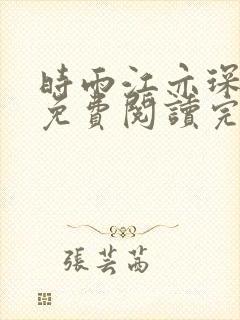 時雨江亦琛
免費閱讀完
張芸茜